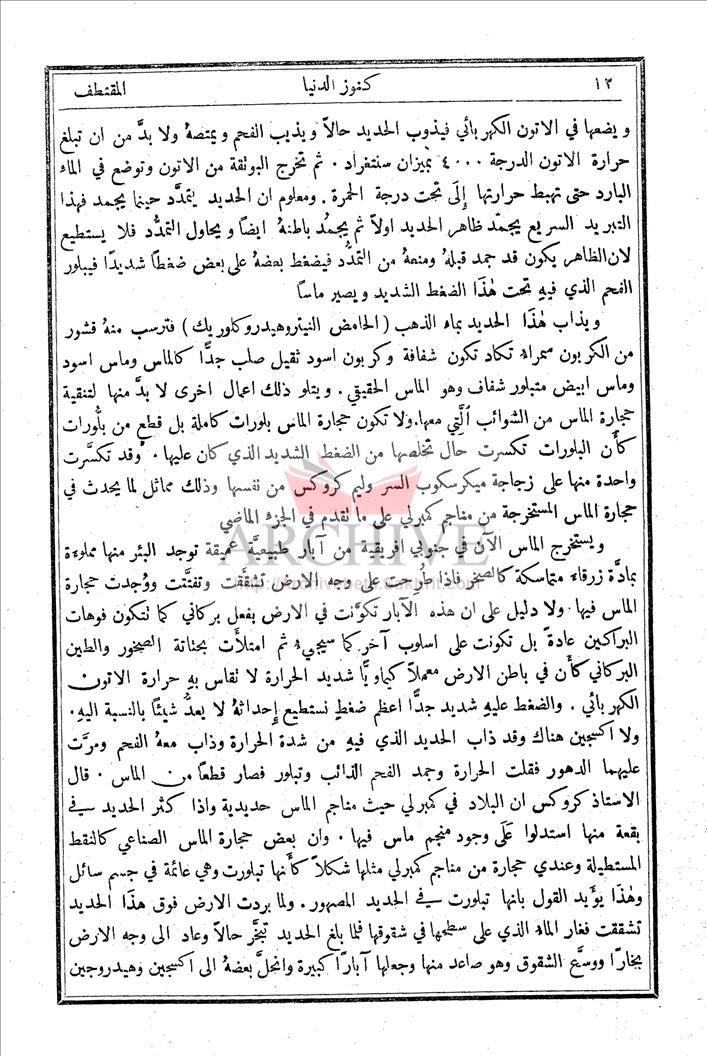 ١٢ كنوز الدنيا المقتطف
ويضعها في الاتون الكهربائي فيذوب الحديد حالاً ويذيب الفحم ويمتصهُ ولا بدَّ من ان تبلغ
حرارة الاتون الدرجة ٤٠٠٠ بميزان سنتغراد . ثم تخرج البوثقة من الاتون وتوضع في الماء
البارد حتى تهبط حرارتها إِلَى تحت درجة الحمرة . ومعلوم ان الحديد يتمدَّد حينما يجمد فهذا
التبريد السريع يجمّد ظاهر الحديد اولاً ثم يجمُد باطنهُ ايضاً ويحاول التمدُّد فلا يستطيع
لان الظاهر يكون قد جمد قبلهُ ومنعهُ من التمدُّد فيضغط بعضهُ على بعض ضغطاً شديدًا فيبلور
الفحم الذي فيهِ تحت هٰذَا الضغط الشديد ويصير ماساً
ويذاب هٰذَا الحديد بماء الذهب ( الحامض النيتروهيدروكلوريك ) فترسب منهُ قشور
من الكربون سمراءُ تكاد تكون شفافة وكربون اسود ثقيل صلب جدًّا كالماس وماس اسود
وماس ابيض متبلور شفاف وهو الماس الحقيقي . ويتلو ذلك اعمال اخرى لا بدَّ منها لتنقية
حجارة الماس من الشوائب الَّتِي معها. ولا تكون حجارة الماس بلورات كاملة بل قطع من بلُّورات
كأَن البلورات تكسرت حال تخلصها من الضغط الشديد الذي كان عليها . وقد تكسَّرت
واحدة منها على زجاجة ميكرسكوب السر وليم كروكس من نفسها وذلك مماثل لما يحدث في
حجارة الماس المستخرجة من مناجم كمبرلي على ما تقدم في الجزءِ الماضي
ARCHIVE
ويستخرج الماس الآن في جنوبي افريقية من آبار طبيعيَّة عميقة توجد البئر منها مملوءة
بمادَّة زرقاء متماسكة كالصخر فاذا طُرحت على وجه الارض تشقَّقت وتفتَّتت ووُجدت حجارة
الماس فيها . ولا دليل على ان هذه الآبار تكوَّنت في الارض بفعل بركاني كما تتكون فوهات
البراكين عادةً بل تكونت على اسلوب آخر كما سيجيءُ ثم امتلأَت بحتاتة الصخور والطين
البركاني كأَن في باطن الارض معملاً كيماويًّا شديد الحرارة لا تقاس بهِ حرارة الاتون
الكهربائي . والضغط عليهِ شديد جدًّا اعظم ضغطٍ نستطيع إحداثهُ لا يعدُّ شيئاً بالنسبة اليهِ .
ولا اكسجين هناك وقد ذاب الحديد الذي فيهِ من شدة الحرارة وذاب معهُ الفحم ومرَّت
عليهما الدهور فقلت الحرارة وجمد الفحم الذائب وتبلور فصار قطعاً من الماس . قال
الاستاذ كروكس ان البلاد في كمبرلي حيث مناجم الماس حديدية واذا كثر الحديد في
بقعة منها استدلوا عَلَى وجود منجم ماس فيها . وان بعض حجارة الماس الصناعي كالنقط
المستطيلة وعندي حجارة من مناجم كمبرلي مثلها شكلاً كأَنها تبلورت وهي عائمة في جسم سائل
وهٰذَا يؤَيد القول بانها تبلورت في الحديد المصهور . ولما بردت الارض فوق هٰذَا الحديد
تشققت فغار الماءُ الذي على سطحها في شقوقها فلما بلغ الحديد تبخَّر حالاً وعاد الى وجه الارض
بخارًا ووسَّع الشقوق وهو صاعد منها وجعلها آبارًا كبيرة وانحلَّ بعضهُ الى اكسجين وهيدروجين